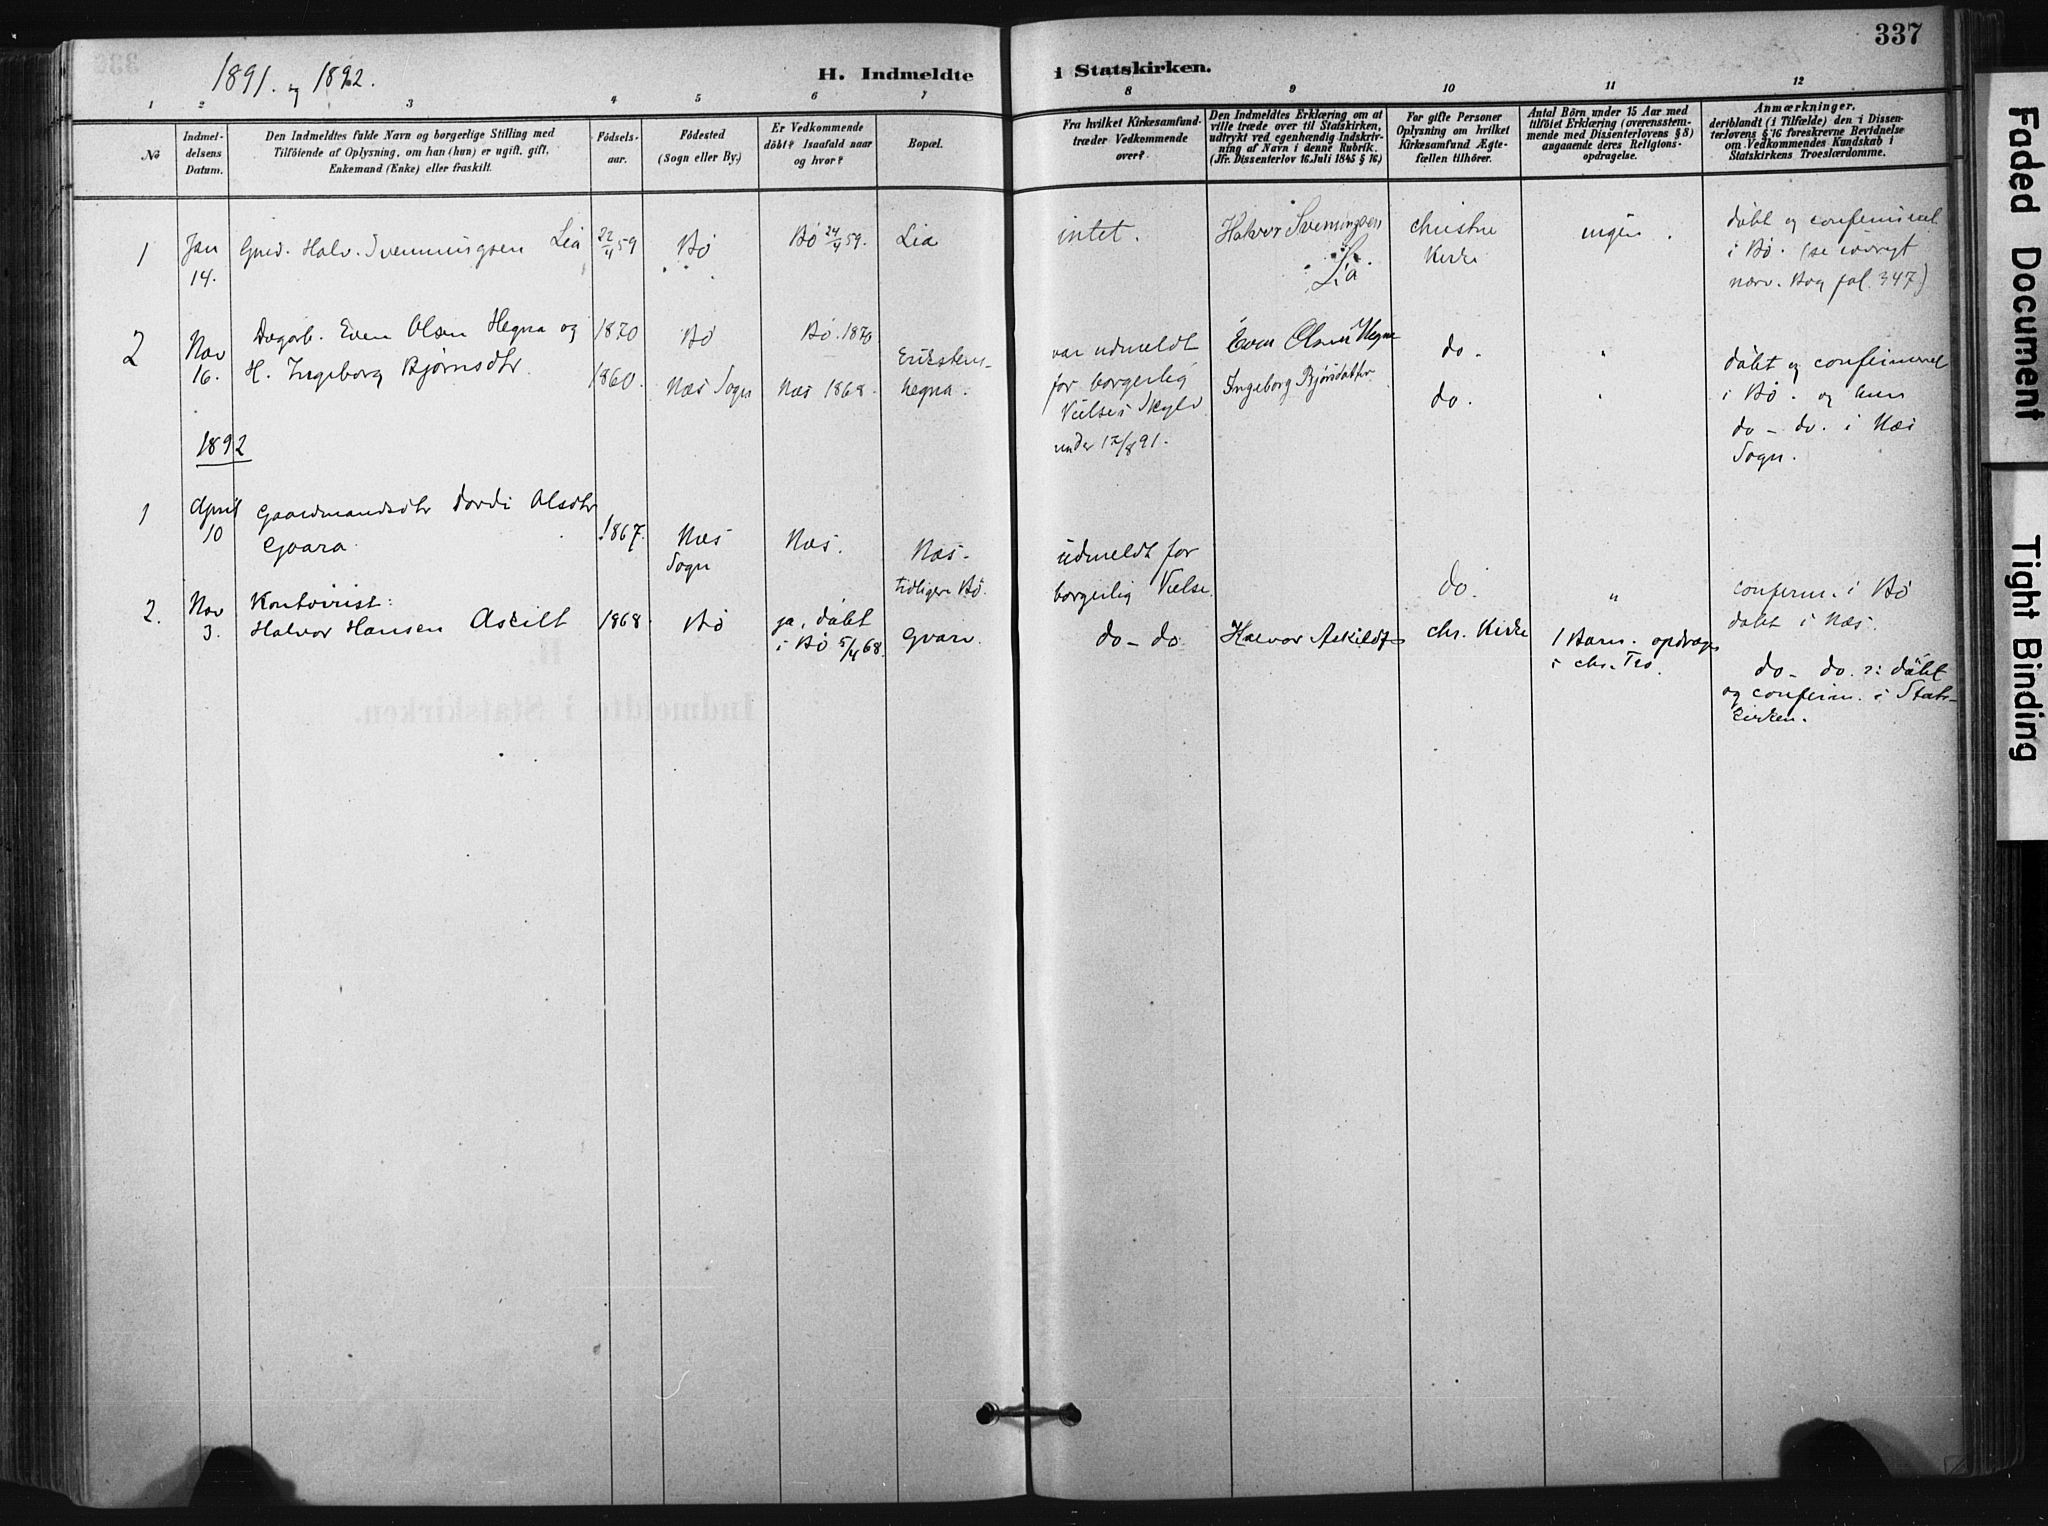 337
1891. og 1892.
H. Indmeldte i Statskirken.
1 2 3 4 5 6 7 8 9 10 11 12
No
Indmel-
delsens
Datum.
Den Indmeldtes fulde Navn og borgerlige Stilling med
Tilföiende af Oplysning, om han (hun) er ugift, gift,
Enkemand (Enke) eller fraskilt.
Födsels-
aar.
Födested
(Sogn eller By.)
Er Vedkommende
döbt? Isaafald naar
og hvor?
Bopæl.
Fra hvilket Kirkesamfund
træder Vedkommende
over?
Den Indmeldtes Erklæring om at
ville træde over til Statskirken,
udtrykt ved egenhændig Indskriv-
ning af Navn i denne Rubrik.
(Jfr. Dissenterlov 16 Juli 1845 § 16)
For gifte Personer
Oplysning om hvilket
Kirkesamfund Ægte-
fællen tilhörer.
Antal Börn under 15 Aar med
tilföiet Erklæring (overensstem-
mende med Dissenterlovens § 8)
angaaende deres Religions-
opdragelse.
Anmærkninger,
deriblandt (i Tilfælde) den i Dissen-
terlovens § 16 foreskrevne Bevidnelse
om Vedkommendes Kundskab i
Statskirkens Troeslærdomme.
1
Jan
14.
Halv. Svenningsen Lia
22/4 59
Bø
Bø 24/4 59.
Lia
intet.
Halvor Svenningsen
Lia
christne
Kirke
ingen.
døbt og confirmeret
i Bø. (se
nærv. Bog fol. 347)
2
Nov
16.
Dagarb. Even Olsen Hegna og
H. Ingeborg Bjørnsdtr.
1870
1860.
Bø
Næs Sogn
Bø. 1870
Næs 1868.
Eriksten-
hegna.
var udmeldt
for borgerlig
Vielses Skyld
under 17/8 91.
Even Olsen Hegna
Ingeborg Bjørsdatter
do.
do.
"
"
døbt og confirmeret
i Bø. og hun
do - do. i Næs
Sogn.
1892
1
April
10
Gaardmandsdtr Dordi Olsdtr
Gvara.
1867.
Næs
Sogn
Næs.
Næs.
tidligere Bø.
udmeldt for
borgerlig Vielse.
do.
"
conferm. i Bø
døbt i Næs.
2.
Nov
3.
Kontorist:
Halvor Hansen Askilt
1868.
Bø
ja, døbt
i Bø 5/4 68.
Gvarv.
do - do.
Halvor Askildt
chr. Kirke
1 Barn. opdrages
i chr. Tro.
do - do. ɔ: døbt
og confirm. i Stats-
kirken.
H.
Indmeldte i Statskirken.
Faded Document
Tight Binding